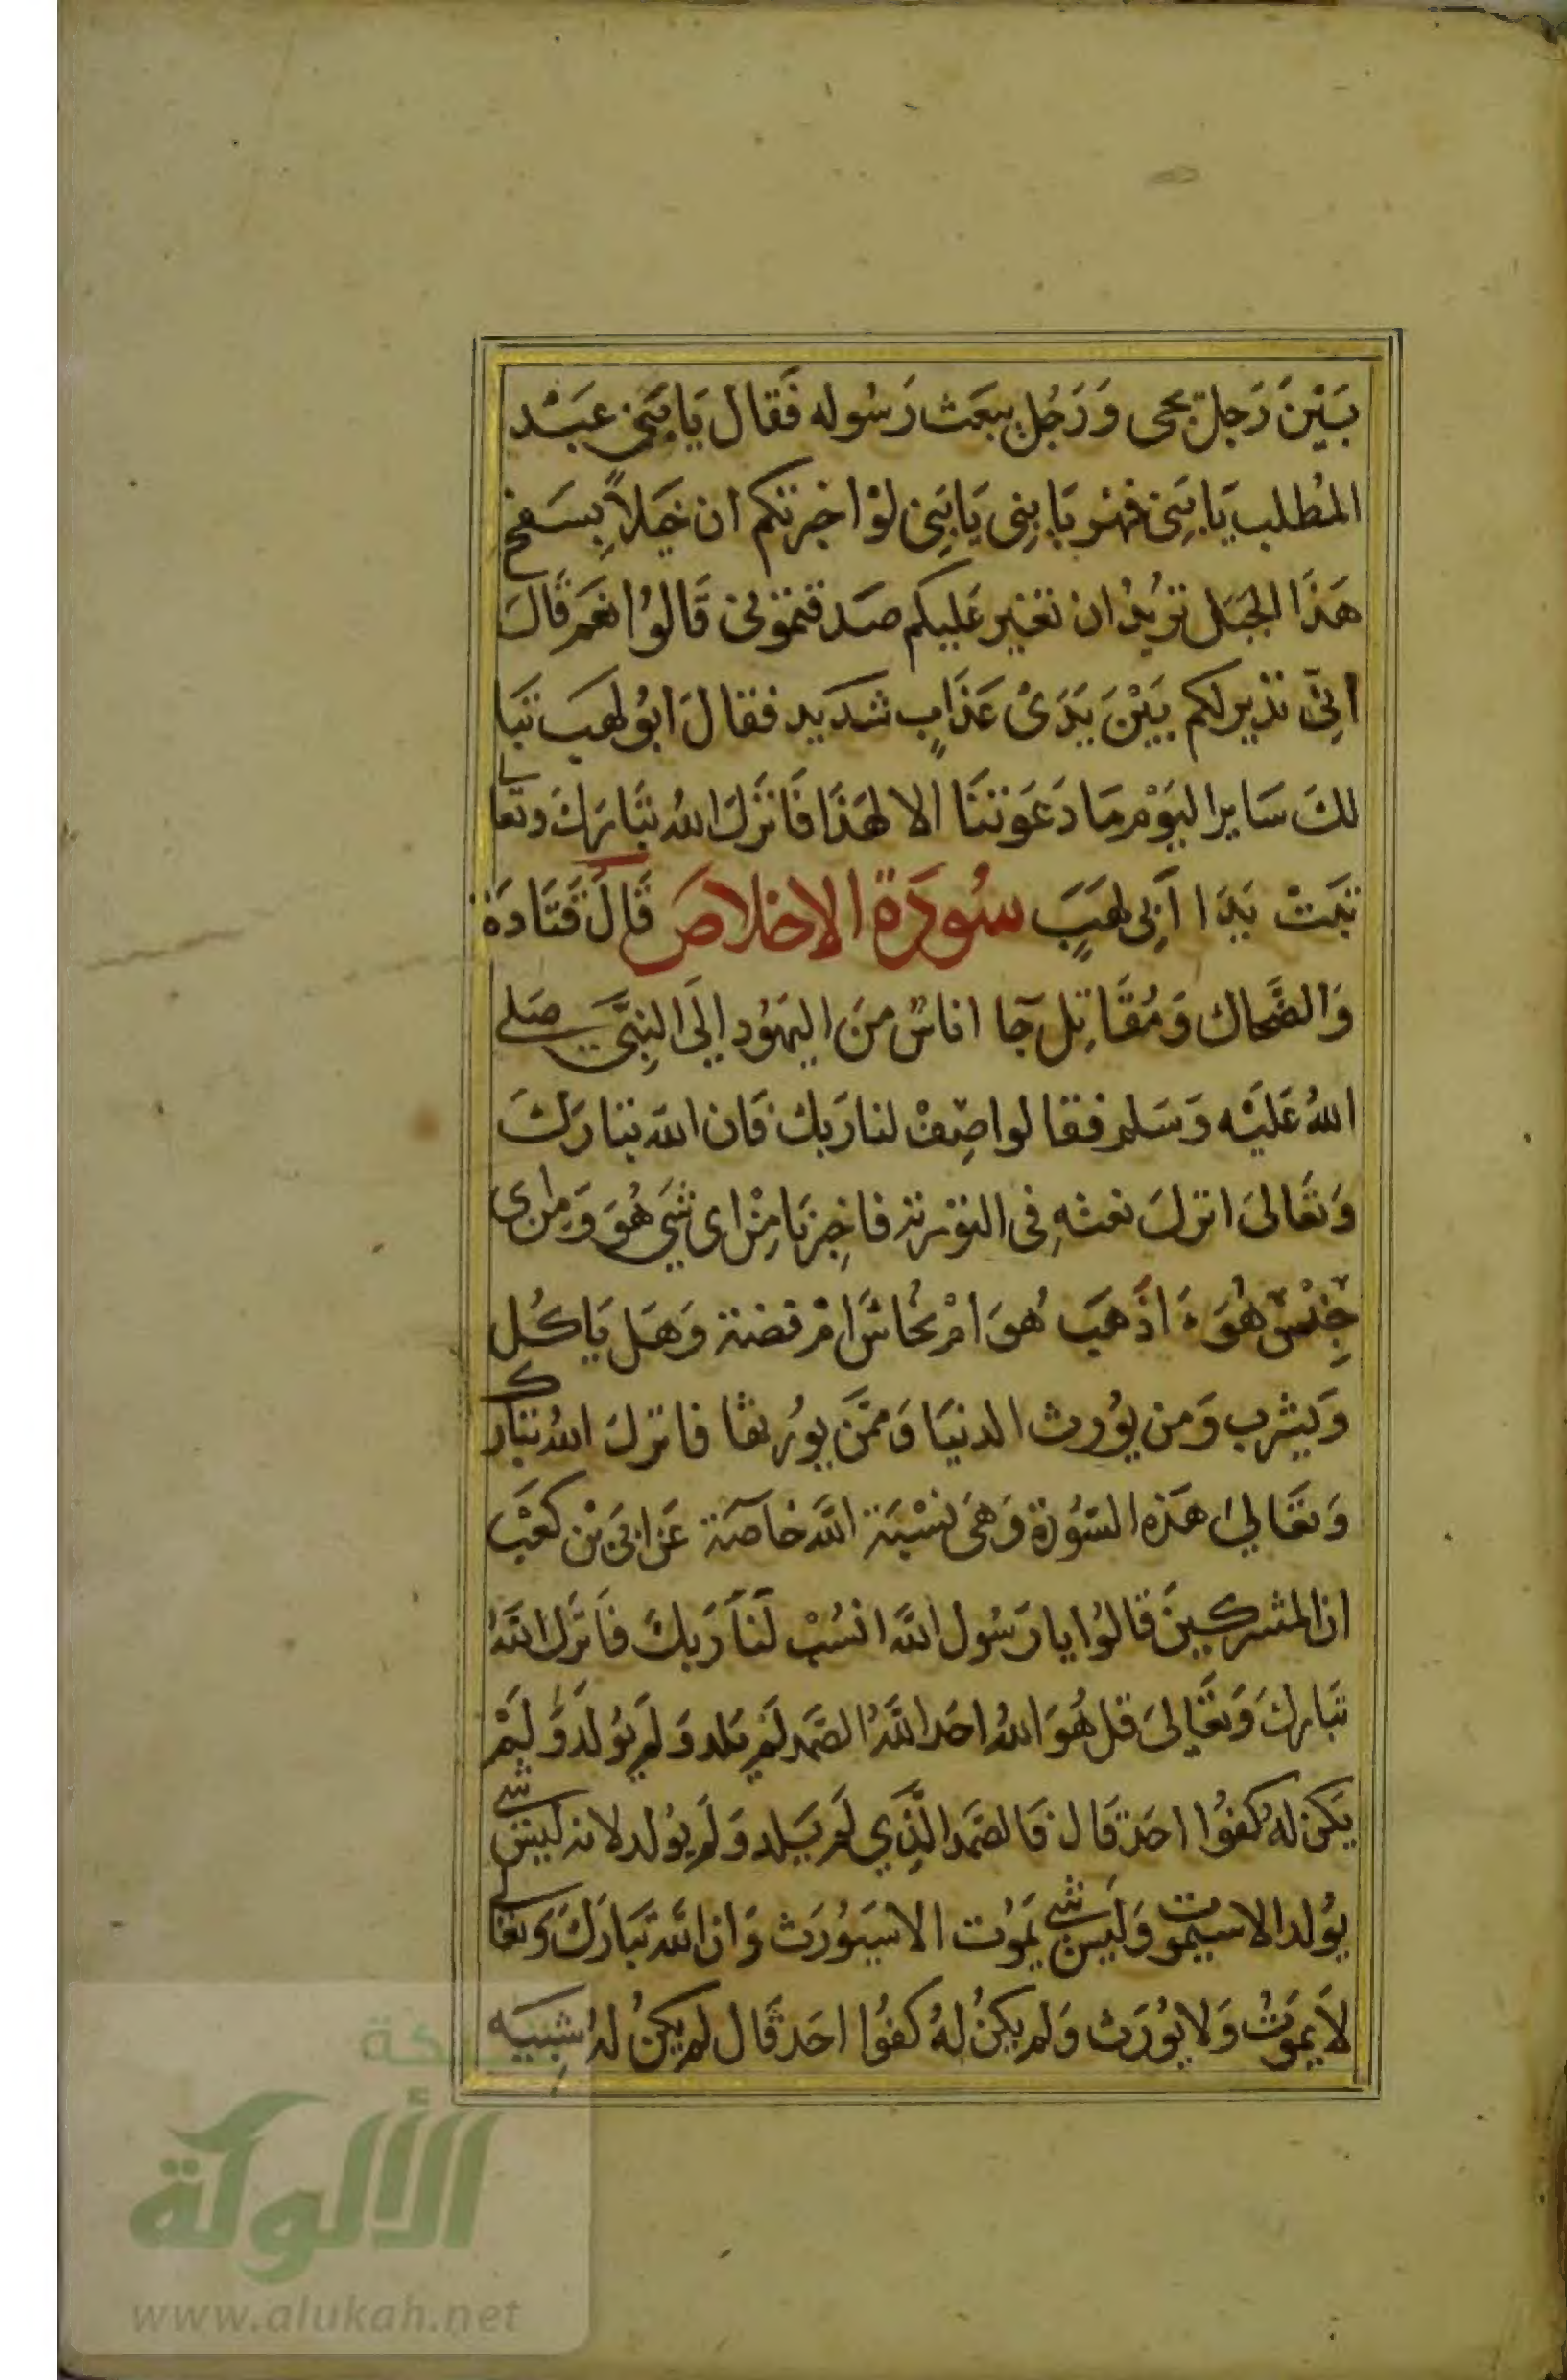 بَيْنَ رَجل يجى وَرَجُل يبعَث رَسُوله فَقال يَا بَنِى عَبْد
المُطلب يَا بَنِى فهر يَا بنِى يَا بَنِى لوْ اخبرتكم ان خَيلاً بِسَفح
هَذَا الجبَل تريُدُ ان تغير عَليكم صَدقتمونى قَالوُا نعَم قَالَ
انِىّ نذير لكم بَيْنَ يَدَىْ عَذَابٍ شدَيد فقالَ ابوُ لهَب تبَا
لكَ سَاير اليَوْم مَا دَعَوتنَا الا لهَذَا فَانزَلَ اللهُ تبَارَكَ وتعَالى
تَبتْ يَدَا أَبِى لهَبٍَ سُورَة الإخلاصَ قَالَ قَتَادَة
وَالضَّحاك وَمُقَاتِل جَا اناسٌ منَ اليَهوُد إلَى النبِىَّ صَلى
اللهُ عَليْه وَسَلم فقالوا صِفْ لنا رَبك فَان الله تبَارَكَ
وَتعَالىَ انزلَ نعتهِ فى التورية فاخبِرنَا مِنْ اى شَي هُوَ وَمِن اى
جِنْسٍ هُوَ اذَهَب هُوَ امْ نُحَاسٌ امْ فضة وَهَل يَاكُل
وَيشرب وَمن يوُرث الدنيَا وَممَّن يوُرثهَا فانزلَ اللهُ تبَارك
وَتعَاليَ هَذه السّوُرة وَهىَ نسْبَة اللَّه خاصَة عَن ابَى بْن كعَبْ
ان المشركينَ قالوُا يا رَسُول اللَّه انسُبْ لَنَا رَبكَ فَانزَل اللَّهُ
تبَاركَ وَتعَالىَ قل هُوَ اللهُ احَد اللَّهُ الصّمد لَمْ يَلد وَلَم يوُلَد وَلَمْ
يَكن لهُ كفوُا احَد قَال فَالصّمَد الَّذِي لَم يَلِد وَلَم يوُلد لانه لَيسَ شى
يوُلد الا سيَمُوت وَليَس شى يَموُت الا سَيوُرَث وَان اللَّه تبَارَكَ وَتعَالى
لاَ يموَتُ وَلا يوُرَث وَلم يكنُ لهُ كفوُا احَد قَال لم يَكنُ لهُ شِبيَه
شبكة
الألوكة
www.alukah.net